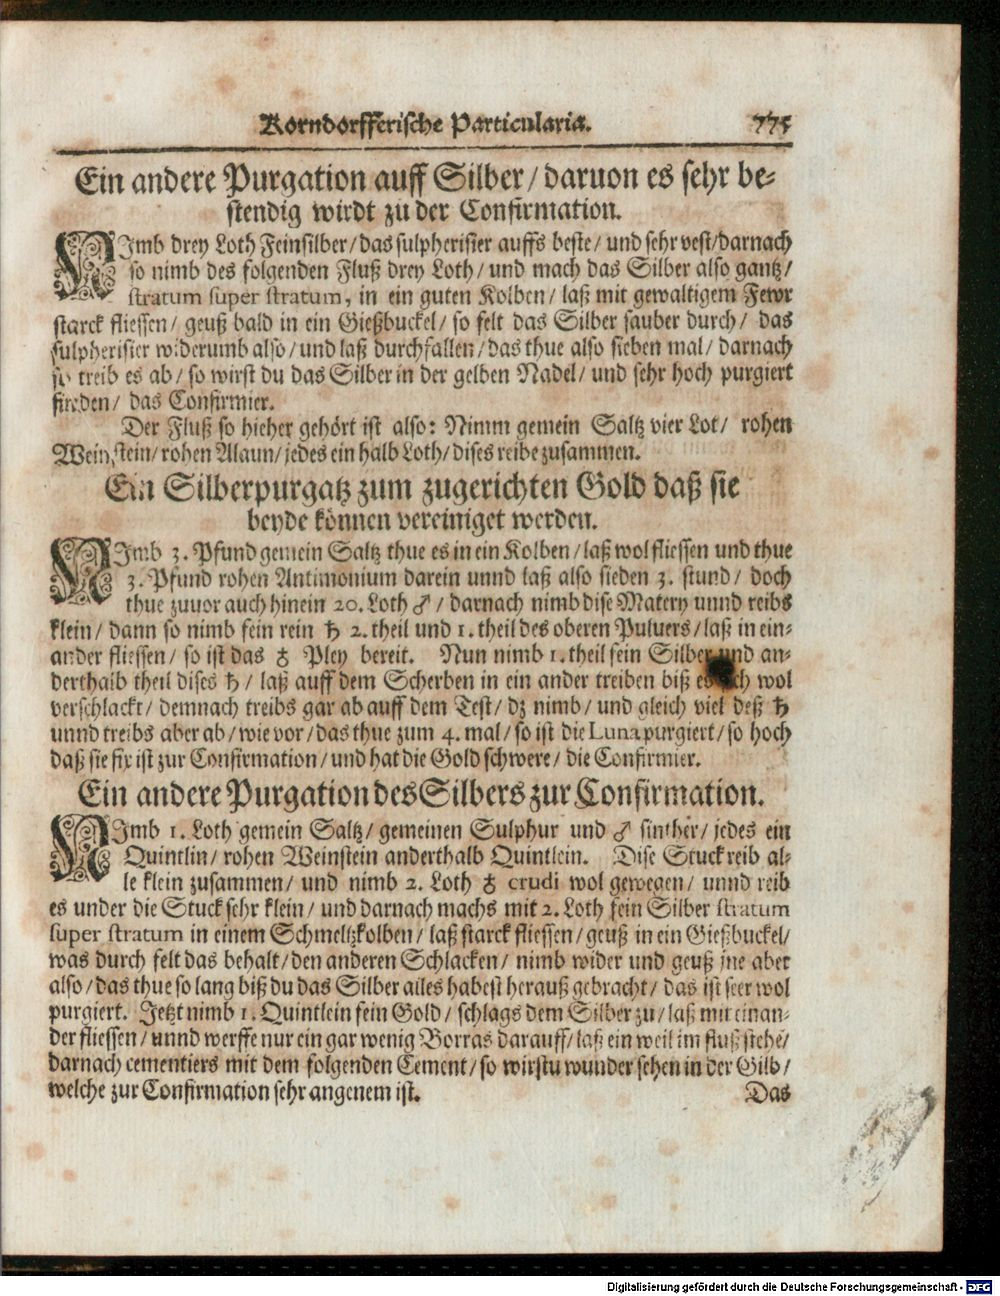 Korndorfferische Particularia. 775
Ein andere Purgation auff Silber / daruon es sehr be-
stendig wirdt zu der Confirmation.
NImb drey Loth Feinsilber / das sulpherisier auffs beste / und sehr vest / darnach
so nimb des folgenden Fluß drey Loth / und mach das Silber also gantz /
stratum super stratum, in ein guten Kolben / laß mit gewaltigem Fewr
starck fliessen / geuß bald in ein Gießbuckel / so felt das Silber sauber durch / das
sulpherisier widerumb also / und laß durchfallen / das thue also sieben mal / darnach
so treib es ab / so wirst du das Silber in der gelben Nadel / und sehr hoch purgiert
finden / das Confirmier.
Der Fluß so hieher gehört ist also: Nimm gemein Saltz vier Lot / rohen
Weinstein / rohen Alaun / jedes ein halb Loth / dises reibe zusammen.
Ein Silberpurgatz zum zugerichten Gold daß sie
beyde können vereiniget werden.
NImb 3. Pfund gemein Saltz thue es in ein Kolben / laß wol fliessen und thue
3. Pfund rohen Antimonium darein unnd laß also sieden 3. stund / doch
thue zuuor auch hinein 20. Loth ♂ / darnach nimb dise Matery unnd reibs
klein / dann so nimb fein rein ♄ 2. theil und 1. theil des oberen Puluers / laß in ein-
ander fliessen / so ist das ♁ Pley bereit. Nun nimb 1. theil fein Silber und an-
derthalb theil dises ♄ / laß auff dem Scherben in ein ander treiben biß es sich wol
verschlackt / demnach treibs gar ab auff dem Test / dz nimb / und gleich viel deß ♄
unnd treibs aber ab / wie vor / das thue zum 4. mal / so ist die Luna purgiert / so hoch
daß sie fix ist zur Confirmation / und hat die Gold schwere / die Confirmier.
Ein andere Purgation des Silbers zur Confirmation.
NImb 1. Loth gemein Saltz / gemeinen Sulphur und ♂ sinther / jedes ein
Quintlin / rohen Weinstein anderthalb Quintlein. Dise Stuck reib al-
le klein zusammen / und nimb 2. Loth ♁ crudi wol gewegen / unnd reib
es under die Stuck sehr klein / und darnach machs mit 2. Loth fein Silber stratum
super stratum in einem Schmeltzkolben / laß starck fliessen / geuß in ein Gießbuckel /
was durch felt das behalt / den anderen Schlacken / nimb wider und geuß jne aber
also / das thue so lang biß du das Silber alles habest herauß gebracht / das ist seer wol
purgiert. Jetzt nimb 1. Quintlein fein Gold / schlags dem Silber zu / laß mit einan-
der fliessen / unnd werffe nur ein gar wenig Borras darauff / laß ein weil im fluß stehē /
darnach cementiers mit dem folgenden Cement / so wirstu wunder sehen in der Gilb /
welche zur Confirmation sehr angenem ist.
Das
Digitalisierung gefördert durch die Deutsche Forschungsgemeinschaft - DFG